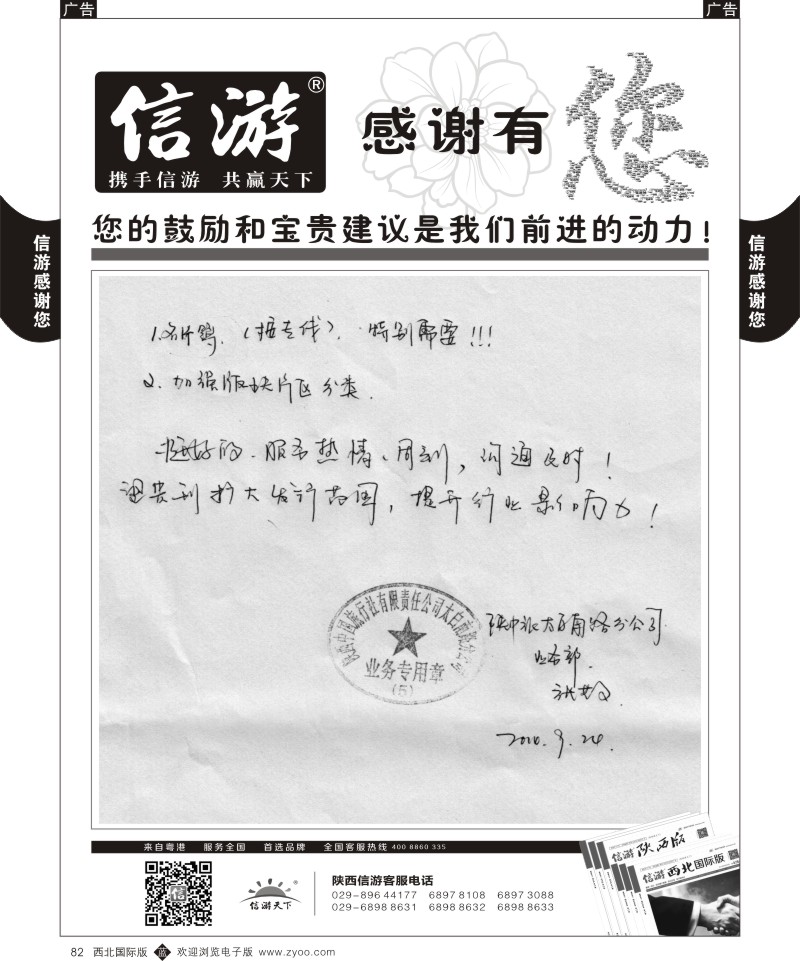 广告
广告
信游®
携手信游 共赢天下
感谢有您
您的鼓励和宝贵建议是我们前进的动力!
信游感谢您
信游感谢您
特别需要!!!
2、加强版块片区分类.
好的、服务热情、周到,沟通及时!
贵刊扩大发行范围,提升行业影响力!
陕西中国旅行社有限责任公司太白南路分公司
业务专用章
(5)
陕中旅太白南路分公司
业务部
9.24.
来自粤港 服务全国 首选品牌 全国客服热线 400 8860 335
信游
信游天下®
陕西信游客服电话
029-896 44177 6897 8108 6897 3088
029-6898 8631 6898 8632 6898 8633
信游 陕西版
信游 西北国际版
82 西北国际版 蓝 欢迎浏览电子版 www.zyoo.com